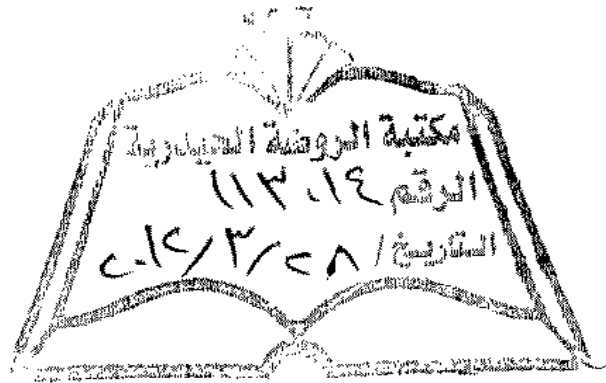 مكتبة الروضة الحيدرية
الرقم ١١٣٠١٤
التاريخ / ٢٨/٣/٢٠١٢